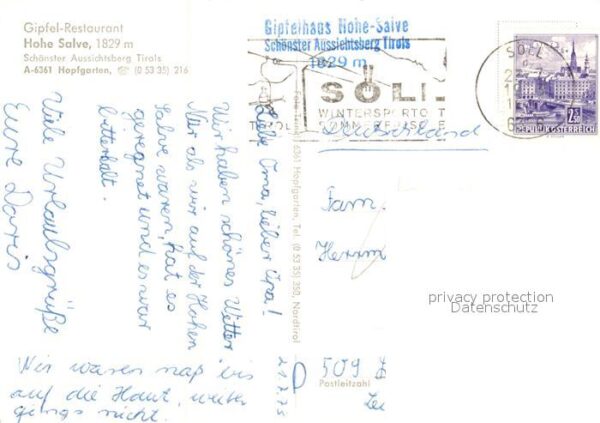 Gipfel-Restaurant
Hohe Salve, 1829 m
Schönster Aussichtsberg Tirols
A-6361 Hopfgarten, ☎ (0 53 35) 216
Gipfelhaus Hohe-Salve
Schönster Aussichtsberg Tirols
1829 m
SÖLL
WINTERSPORTO T
TIROL
SÖLL
2.50
REPUBLIK ÖSTERREICH
Deutschland
Liebe Oma, lieber Opa!
Wir haben schönes Wetter
Nur als wir auf der Hohen
Salve waren, hat es
geregnet und es war
bitterkalt.
Viele Urlaubsgrüße
Eure Doris
Wir waren naß bis
auf die Haut, weiter
gings nicht.
6361 Hopfgarten, Tel. (0 53 35) 350, Nordtirol
Fam.
Herrm
D
509
Postleitzahl
privacy protection
Datenschutz